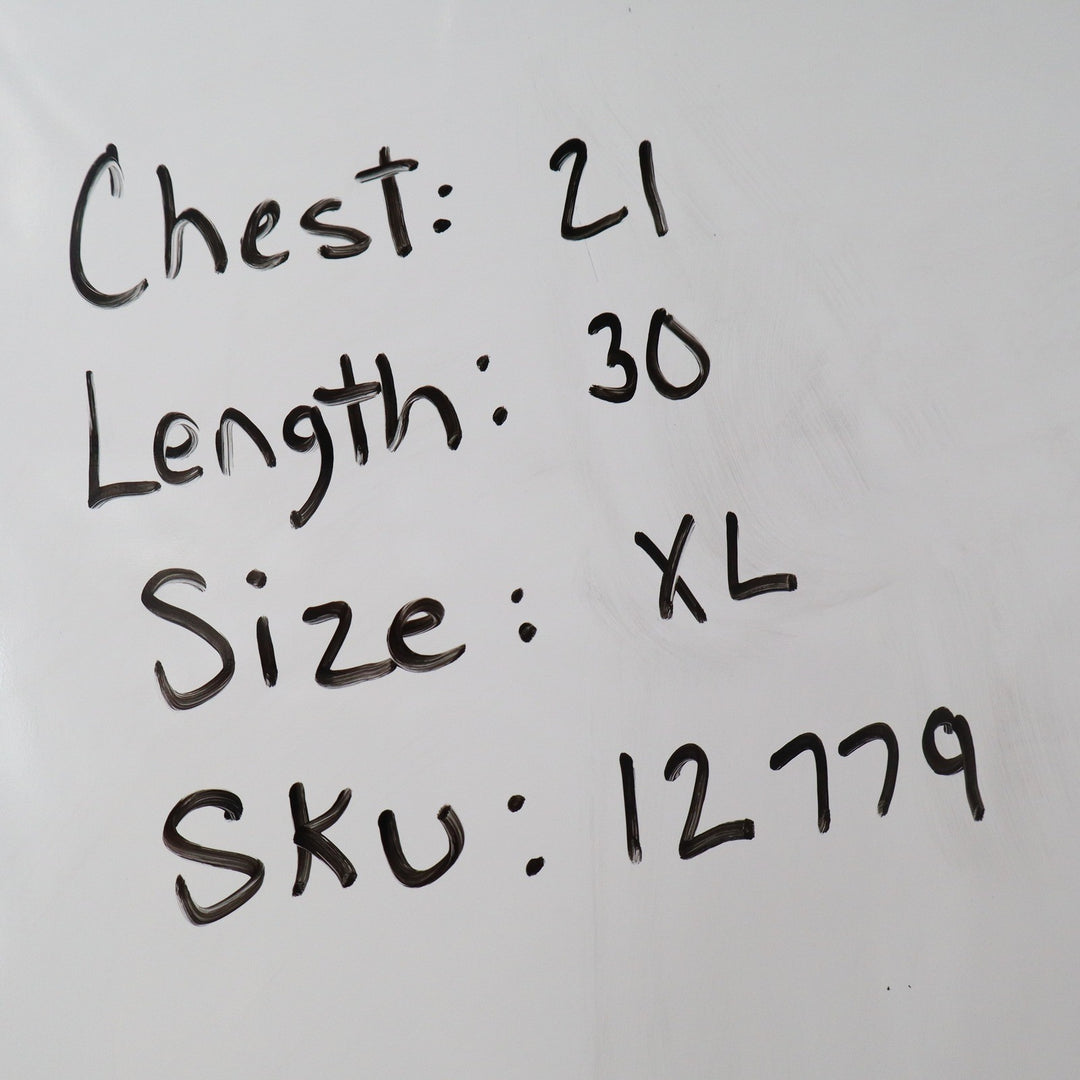 Chest: 21
Length: 30
Size: XL
SKU: 12779